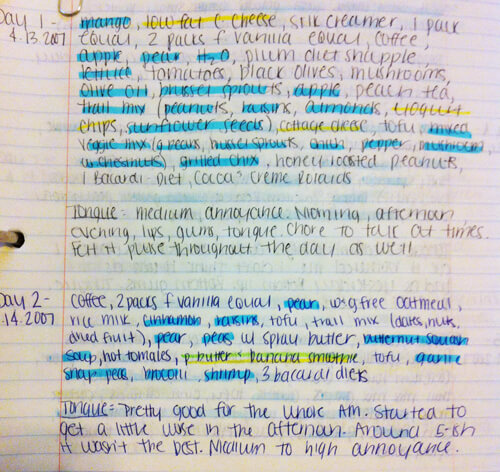 Day 1 - mango, low fat c cheese, silk creamer, 1 pack
4.13.2007 equal, 2 packs f vanilla equal, coffee,
apple, pear, H2O, plum diet snapple,
lettuce, tomatoes, black olives, mushrooms,
olive oil, brussel sprouts, apple, peach tea,
trail mix (peanuts, raisins, almonds, yogurt
chips, sunflower seeds), cottage cheese, tofu, mixed
veggie mix (g beans, brussel sprouts, onion, pepper, mushrooms
w chestnuts), grilled chix, honey roasted peanuts,
1 Bacardi-Diet, Cocoa-Creme Rolaids
Tongue = medium, annoyance. Morning, afternoon
evening, lips, gums, tongue. Chore to talk at times.
Felt it pulse throughout the day as well.
Day 2- coffee, 2 packs f vanilla equal, pear, free oatmeal,
.14.2007 rice milk, cinnamon, raisins, tofu, trail mix (dates, nuts,
dried fruit), pear, peas w splau butter, butternut squash
soup, hot tomales, p butter banana smoothie, tofu, garlic
snap peas, brocolli, shrimp, 3 bacardi diets
Tongue = Pretty good for the whole AM. Started to
get a little worse in the afternoon. Around 5-ish
it wasn't the best. Medium to high annoyance.